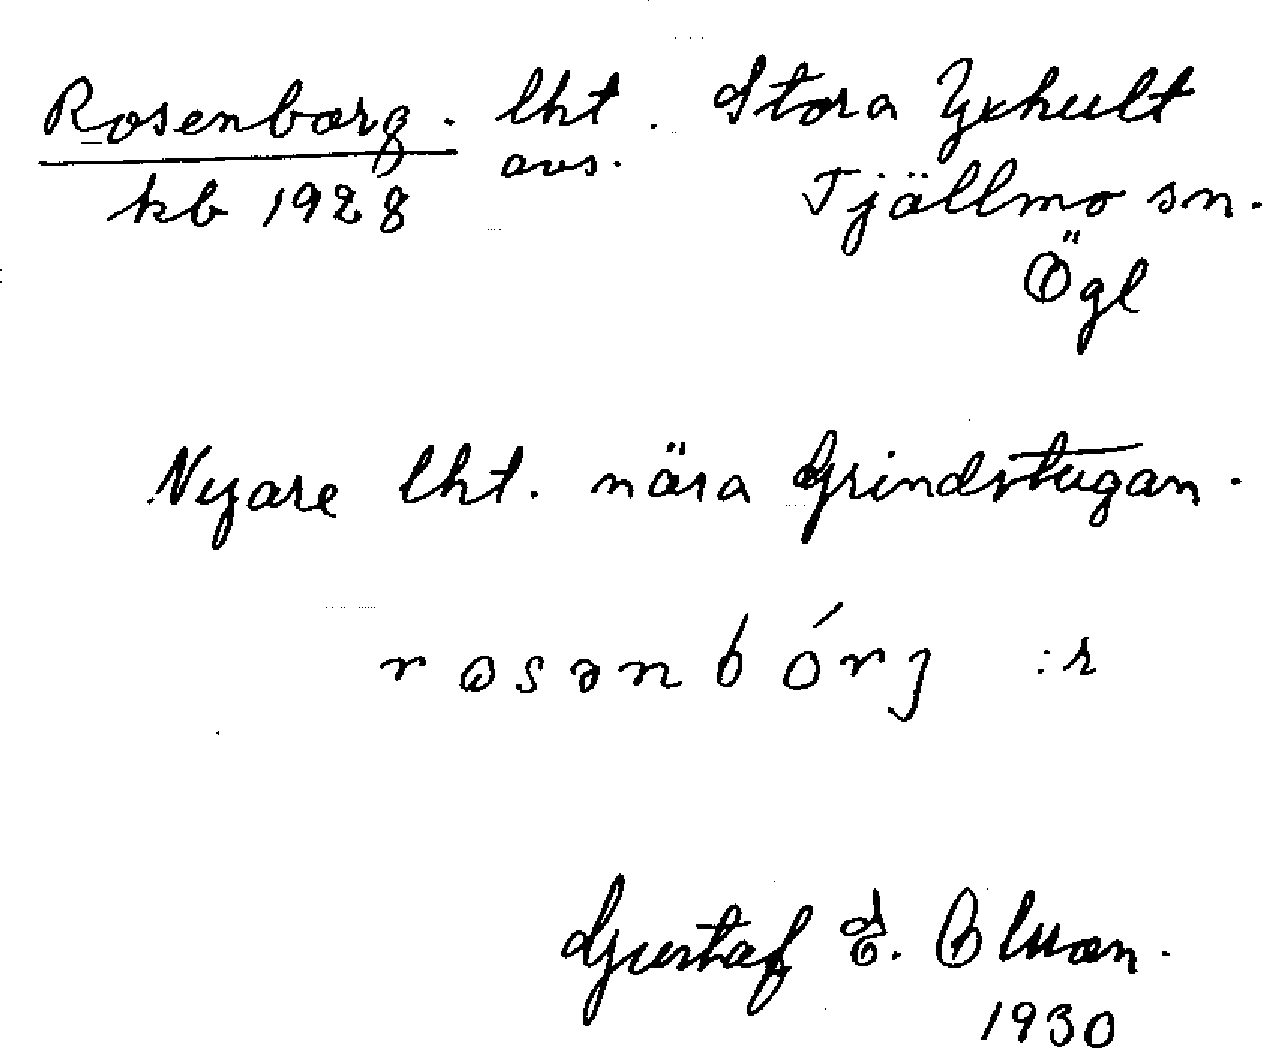 Rosenborg. lht. Stora Yxhult
avs.
kb 1928 Tjällmo sn.
Ögl
Nyare lht. nära Grindstugan.
rosənbórj :r
Gustaf E. Olsson.
1930